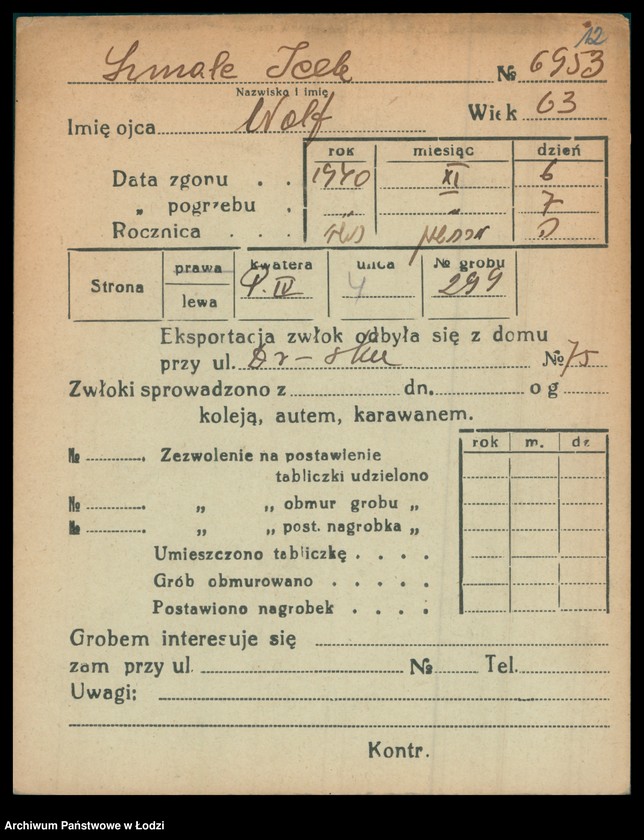 12
Szmale Icek № 6953
Nazwisko i imię
Imię ojca Wolf Wiek 63
rok miesiąc dzień
Data zgonu . . 1940 XI 6
„ pogrzebu . „ „ 7
Rocznica . . .
Strona prawa kwatera ulica № grobu
lewa P. IV 4 299
Eksportacja zwłok odbyła się z domu
przy ul. № 75
Zwłoki sprowadzono z dn. o g
koleją, autem, karawanem.
rok m. dz
№ Zezwolenie na postawienie
tabliczki udzielono
№ „ „ obmur grobu „
№ „ „ post. nagrobka „
Umieszczono tabliczkę . . . .
Grób obmurowano . . . . .
Postawiono nagrobek . . . .
Grobem interesuje się
zam przy ul. № Tel.
Uwagi:
Kontr.
Archiwum Państwowe w Łodzi